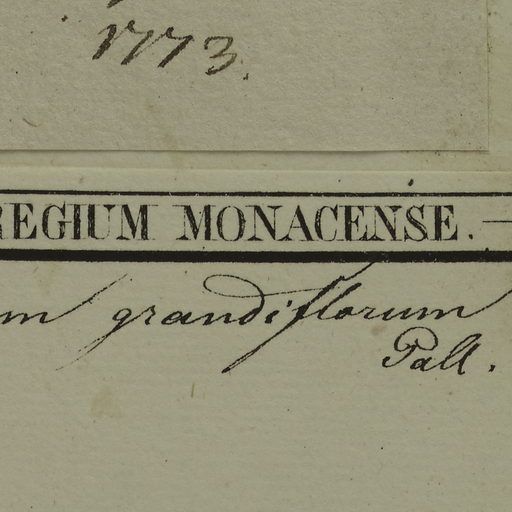 1773.
REGIUM MONACENSE. —
m grandiflorum
Pall.